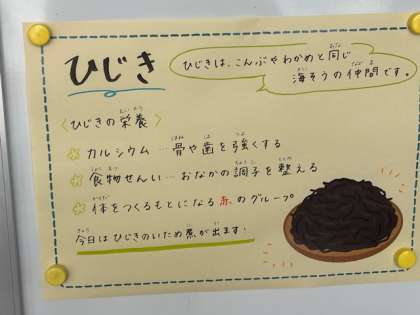 ひじき
ひじきは、こんぶやわかめと同じ
海そうの仲間です。
〈ひじきの栄養〉
カルシウム…骨や歯を強くする
食物せんい…おなかの調子を整える
体をつくるもとになる赤のグループ
今日はひじきのいため煮が出ます!